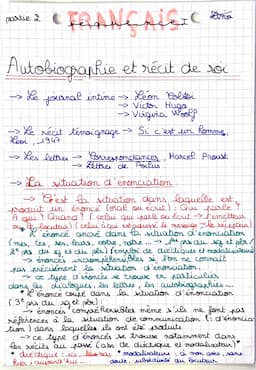 partie 2
FRANÇAIS
séquence I
Autobiographie et récit de soi
→ Le journal intime → Léon Tolstoï
→ Victor Hugo
→ Virginia Woolf
→ Le récit témoignage → Si c'est un homme,
Levi, 1947
→ Les lettres → Correspondances, Marcel Proust
→ Lettres de Poilus
→ La situation d'énonciation :
→ C'est la situation dans laquelle est
produit un énoncé (oral ou écrit) : Qui parle ?
A qui ? Quand ? (celui qui parle ou écrit → l'émetteur
ou le locuteur) (celui à qui est passé le message → le récepteur)
* énoncé ancré dans la situation d'énonciation
(mes, les, ses, leurs, votre, notre → 1ère prs du sg et plr/
2e prs du sg et du plr) (emploi de déictiques et modalisateurs)
→ énoncés incompréhensibles si l'on ne connait
pas précisément la situation d'énonciation.
→ ce type d'énoncés se trouve en particulier
dans les dialogues, les lettres, les autobiographies...
* énoncé coupé dans la situation d'énonciation
(3e prs du sg et plr) :
→ énoncés compréhensibles même s'ils ne font pas
références à la situation de communication (= d'énoncia-
tion) dans laquelles ils ont été produits
→ ce type d'énoncés se trouve notamment dans
les récits au passé (pas de déictiques et modalisateurs)
* déictique : ici, là-bas
hier, aujourd'hui...
* modalisateurs : à mon avis, sans
doute,